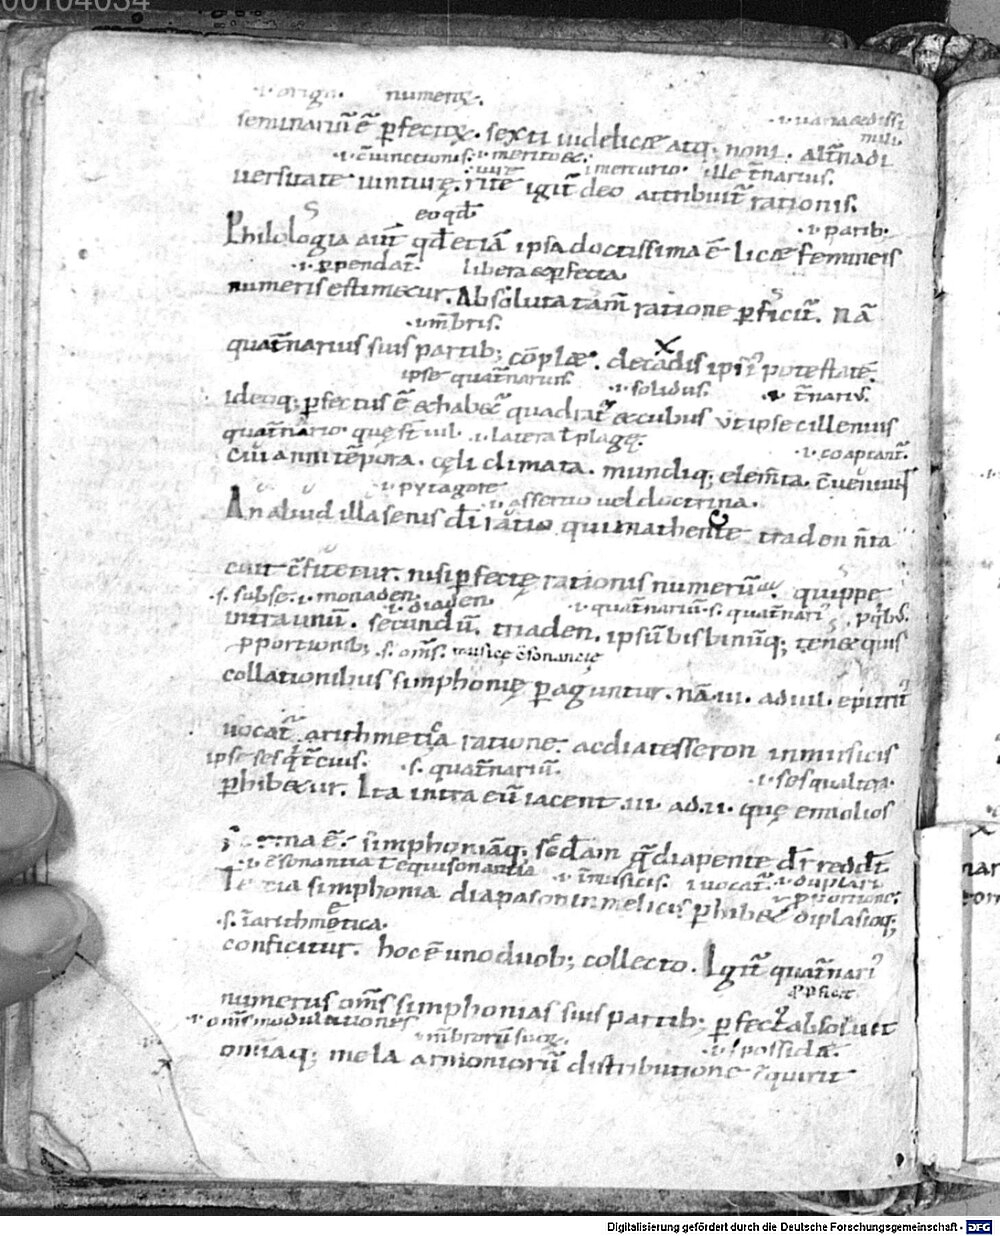 00104034
.i. origo. numerꝰ.
seminariū ē ꝑfectoꝝ. sexti uidelicæ atq; noni. alt̄nadi
.i. uariaedissi
mili.
.i. c̄iunctionis. .i. merito ec. .i. mercurio. ille t̄narius.
.i. iure
uersitate iuncturę. rite igit̄ deo attribuit̄ rationis.
eo qđ .i. parib.
Philologia aut̄ qđ etiā ipsa doctissima ē licæ femineis
.i. ꝑpendat̄. libera & ꝑfecta.
numeris estimetur. Absoluta tam̄ ratione ꝑficit̄. nā
.i. mēbris.
quat̄narius suis partib; cōplæ. decadis ipsi' potestatē.
ipse quat̄narius. .i. solidus. .i. t̄nariꝰ.
ideoq; ꝑfectus ē & habet̄ quadrat' & cubus vt ipse cillenius
quat̄nario. quę st̄ iiii. .i. latera t̄ plagę. .i. coaptant̄.
cui anni tēpora. cęli climata. mundiq; elem̄ta. c̄ueniunt
.i. pytagore .i. assertio uel doctrina.
An aliud illa senis di ratio qui mathen te traden n̄ia
cuit c̄fitetur. nisi ꝑfectę rationis numerū. quippe
.s. subse .i. monaden .i. diaden .i. quat̄nariū .s. quat̄nari' . p q̄bꝰ.
intra unū. secundū. triaden. ipsū bis binūq; tenet quis
ꝓportionib; .s. om̄s. musicę c̄sonancię
collationibus simphonię ꝑaguntur. nā .iii. ad .iiii. epitrit'
uocat̄ arithmetica ratione. ac diatesseron in musicis
ipse sesq̄t̄cius. .s. quat̄nariū. .i. sesqualtera.
ꝑhibetur. Ita intra eū iacent .iii. ad .ii. quę emiolios
forma ē. simphoniāq; scđam q̄ diapente dr̄ reddt̄
.i. c̄sonantia t̄ equisonantia .i. ī musicis. .i. uocat̄. .i. duplari
ꝓportione.
Tertia simphonia diapason in melicis ꝑhibet̄ diplasioq;
.s. ī arithmetica.
conficitur. hoc ē uno duob; collecto. Igit̄ quat̄nari'
ꝑficit
numerus om̄s simphonias suis partib; ꝑfect' absoluit
.i. om̄s modulationes .i. mēbrorū suoꝝ. .i. possidæ.
omīaq; mela armoniorū distributione c̄quirit
Digitalisierung gefördert durch die Deutsche Forschungsgemeinschaft - DFG